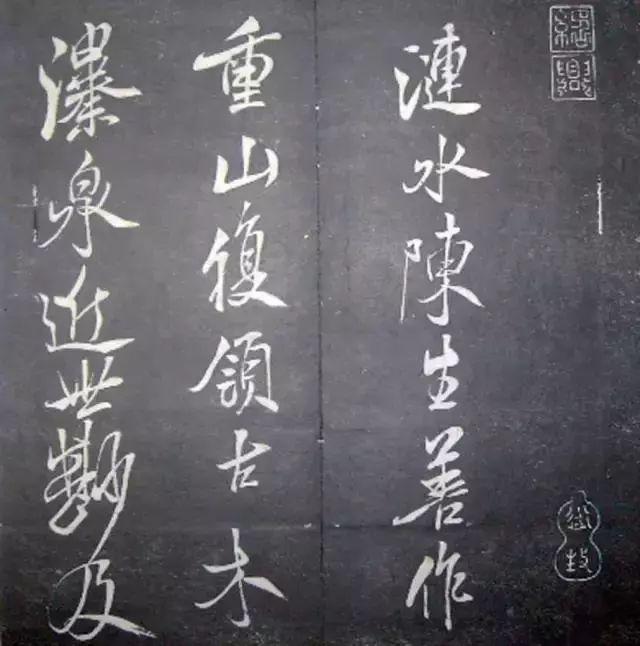 紹興
漣水陳生善作
重山復領古木
瀑泉近世尠及